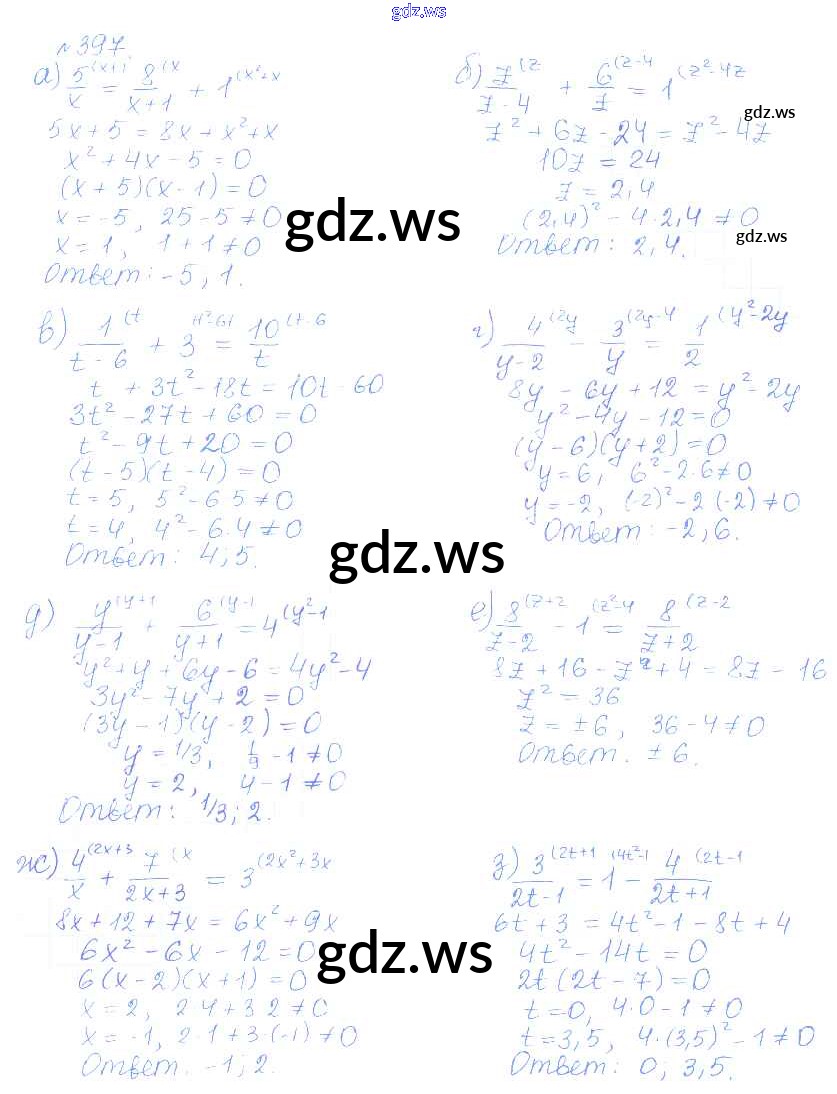 gdz.ws
№397.
а) 5/x (x+1 = 8/(x+1) (x + 1 (x²+x
5x+5 = 8x+x²+x
x²+4x-5=0
(x+5)(x-1)=0
x=-5, 25-5≠0
x=1, 1+1≠0
Ответ: -5; 1.
б) z/(z-4) (z + 6/z (z-4 = 1 (z²-4z
z²+6z-24=z²-4z
10z=24
z=2,4
(2,4)²-4·2,4≠0
Ответ: 2,4.
gdz.ws
gdz.ws
gdz.ws
в) 1/(t-6) (t + 3 (t²-6t) = 10/t (t-6
t+3t²-18t=10t-60
3t²-27t+60=0
t²-9t+20=0
(t-5)(t-4)=0
t=5, 5²-6·5≠0
t=4, 4²-6·4≠0
Ответ: 4; 5.
г) 4/(y-2) (2y - 3/y (2y-4 = 1/2 (y²-2y
8y-6y+12=y²-2y
y²-4y-12=0
(y-6)(y+2)=0
y=6, 6²-2·6≠0
y=-2, (-2)²-2·(-2)≠0
Ответ: -2; 6.
gdz.ws
д) y/(y-1) (y+1 + 6/(y+1) (y-1 = 4 (y²-1
y²+y+6y-6=4y²-4
3y²-7y+2=0
(3y-1)(y-2)=0
y=1/3, 1/9-1≠0
y=2, 4-1≠0
Ответ: 1/3; 2.
е) 8/(z-2) (z+2 - 1 (z²-4 = 8/(z+2) (z-2
8z+16-z²+4=8z-16
z²=36
z=±6, 36-4≠0
Ответ. ±6.
ж) 4/x (2x+3 + 7/(2x+3) (x = 3 (2x²+3x
8x+12+7x=6x²+9x
6x²-6x-12=0
6(x-2)(x+1)=0
x=2, 2·4+3·2≠0
x=-1, 2·1+3·(-1)≠0
Ответ. -1; 2.
з) 3/(2t-1) (2t+1 = 1 (4t²-1 - 4/(2t+1) (2t-1
6t+3=4t²-1-8t+4
4t²-14t=0
2t(2t-7)=0
t=0, 4·0-1≠0
t=3,5, 4·(3,5)²-1≠0
Ответ: 0; 3,5.
gdz.ws